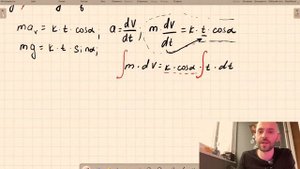 ma_x = k · t · cosα, a = dV/dt, m dV/dt = k · t · cosα
mg = k · t · sinα, ∫ m · dV = k · cosα · ∫ t · dt